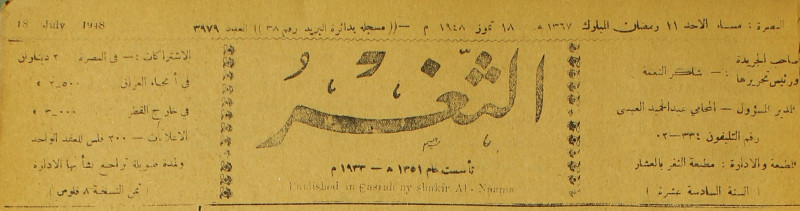 البصرة : مساء الاحد ١١ رمضان المبارك ١٣٦٧ هـ ١٨ تموز ١٩٤٨ م — (( مسجله بدائرة البريد رقم ٣٨ )) العدد ٣٩٧٩
18 July 1948
صاحب الجريدة
ورئيس تحريرها : — شاكر النعمة
المدير المسؤول — المحامي عبدالحميد العيسى
رقم التليفون ٣٣٤ — ٠٢
المطبعة والادارة : مطبعة الثغر بالعشار
( السنة السادسة عشرة )
الثغر
تأسست عام ١٣٥١ هـ — ١٩٣٣ م
Published in Basrah by Shakir Al - Neama
الاشتراكات : — في البصرة ٢ ديناران
في أنحاء العراق ٢٫٥٠٠
في خارج القطر ٣٫٠٠٠
الاعلانات — ٢٠٠ فلس للعقد الواحد
ولمدة طويلة تراجع بشأنها الادارة
( ثمن النسخة ٨ فلوس )